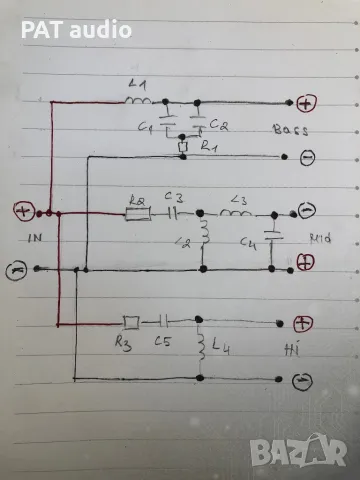 PAT audio
L1
C1
C2
Bass
R1
R2
C3
L3
IN
L2
C4
Mid
R3
C5
L4
Hi
BAZAR